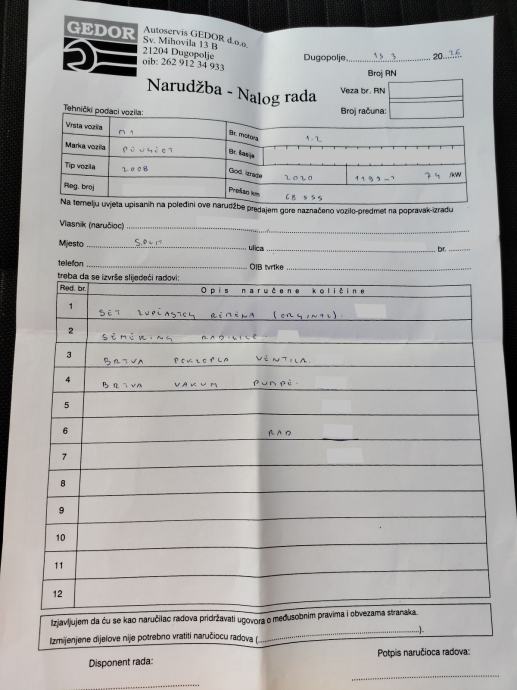 GEDOR
Autoservis GEDOR d.o.o.
Sv. Mihovila 13 B
21204 Dugopolje
oib: 262 912 34 933
Dugopolje, 13 3 20 26
Broj RN
Narudžba - Nalog rada
Veza br. RN
Broj računa:
Tehnički podaci vozila:
Vrsta vozila M1 Br. motora 1.2
Marka vozila PEUGEOT Br. šasije
Tip vozila 2008 God. izrade 2020 1199-3 74 /KW
Reg. broj Prešao km 68 555
Na temelju uvjeta upisanih na poleđini ove narudžbe predajem gore naznačeno vozilo-predmet na popravak-izradu
Vlasnik (naručioc)
Mjesto SPLIT ulica br.
telefon OIB tvrtke
treba da se izvrše slijedeći radovi:
Red. br. Opis naručene količine
1 SET ZUPČASTOG REMENA (ORGINAL).
2 SEMERING RADILICE.
3 BRTVA POKLOPCA VENTILA.
4 BRTVA VAKUM PUMPE.
5
6 RAD
7
8
9
10
11
12
Izjavljujem da ću se kao naručilac radova pridržavati ugovora o međusobnim pravima i obvezama stranaka.
Izmijenjene dijelove nije potrebno vratiti naručiocu radova (............).
Disponent rada:
Potpis naručioca radova: